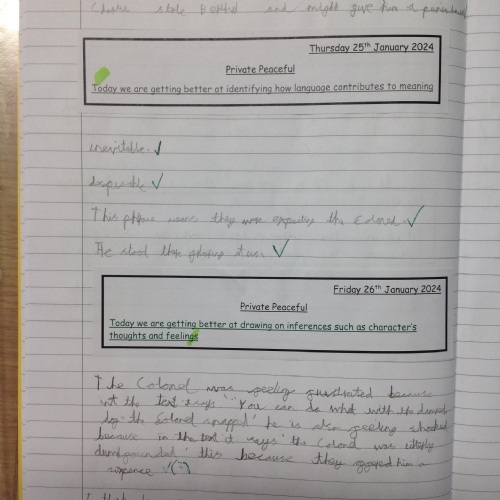 Charlie stole Bertha and might give him a punishment
Thursday 25th January 2024
Private Peaceful
Today we are getting better at identifying how language contributes to meaning
inevitable.
despicable
This phrase means they were expecting the Colonel.
He stood there glaring at us.
Friday 26th January 2024
Private Peaceful
Today we are getting better at drawing on inferences such as character's
thoughts and feelings
The Colonel was feeling frustrated because
in the text it says "You can do what with the damned
dog" the Colonel snapped' he is also feeling shocked
because in the text it says 'the Colonel was utterly
dumbfounded' this because they offered him a
sixpence